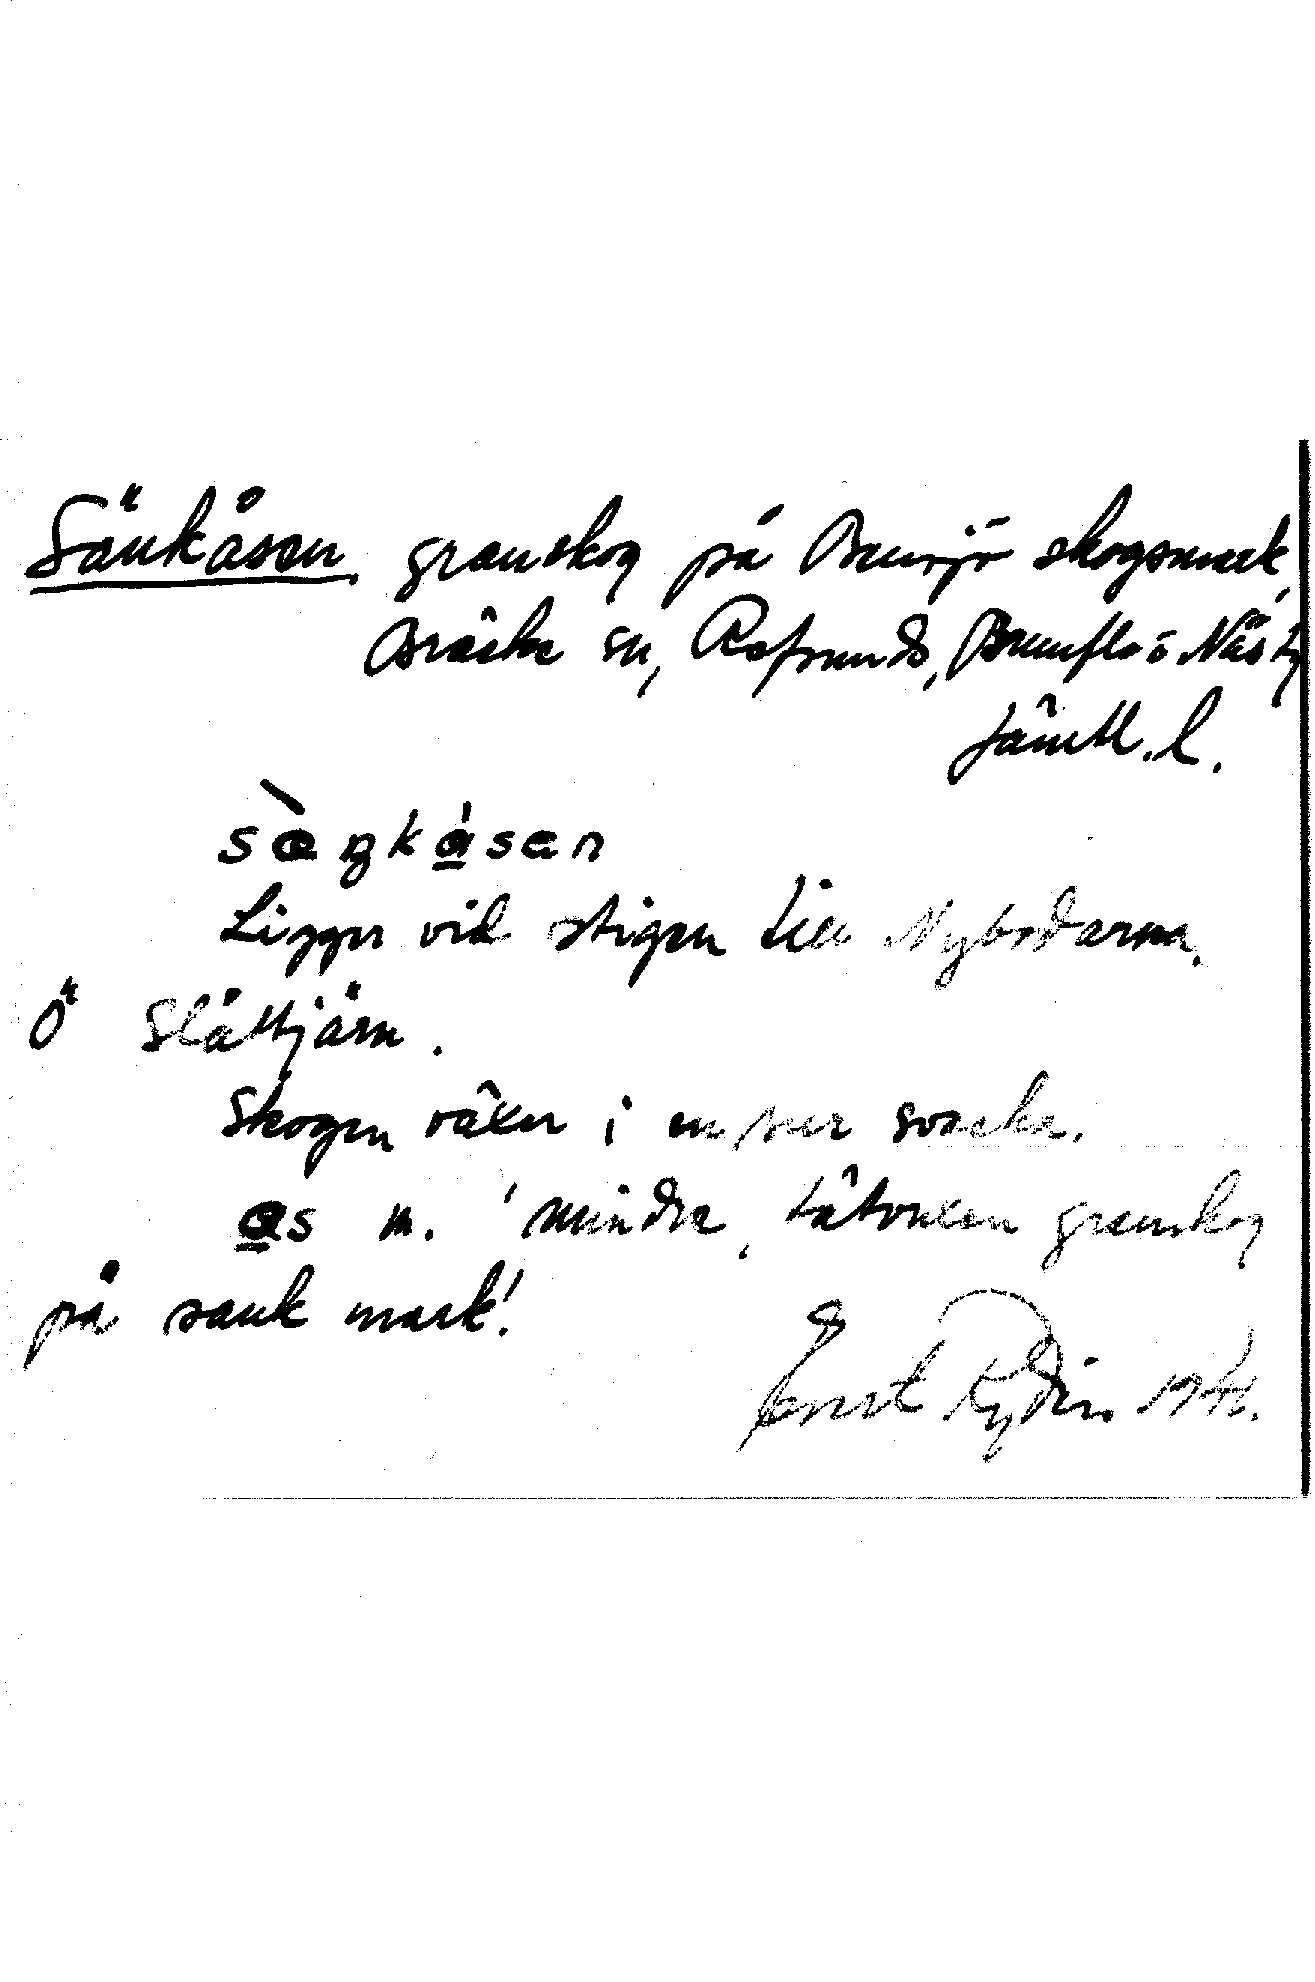 Sänkåsen, granskog på Bensjö skogsmark,
Bräcke sn, Refsunds, Brunflo o Näs tg
Jämtl. l.
sæ̀ŋkåsen
Ligger vid stigen till Nybodarna,
Ö Slåttjärn.
Skogen växer i en sur svacka.
ås m. 'mindre, tätvuxen granskog
på sank mark'.
Ernst Rydin 1941.